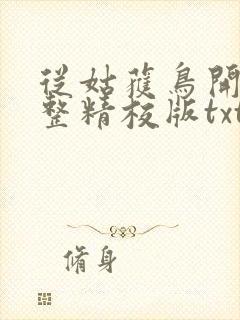 從姑獲鳥開
整精校版txt
脩身